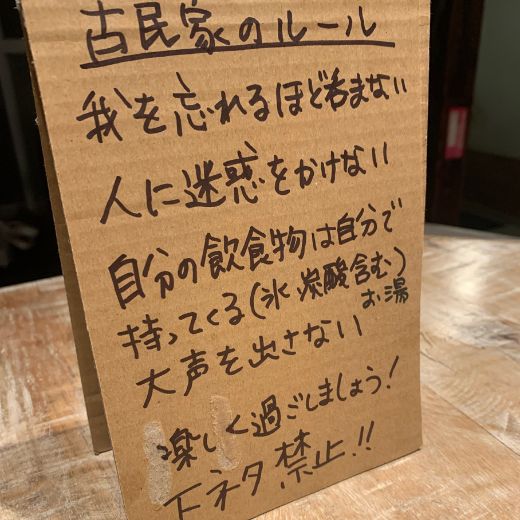 古民家のルール
我を忘れるほど呑まない
人に迷惑をかけない
自分の飲食物は自分で
持ってくる(氷 炭酸含む)
お湯
大声を出さない
楽しく過ごしましょう!
下ネタ禁止!!